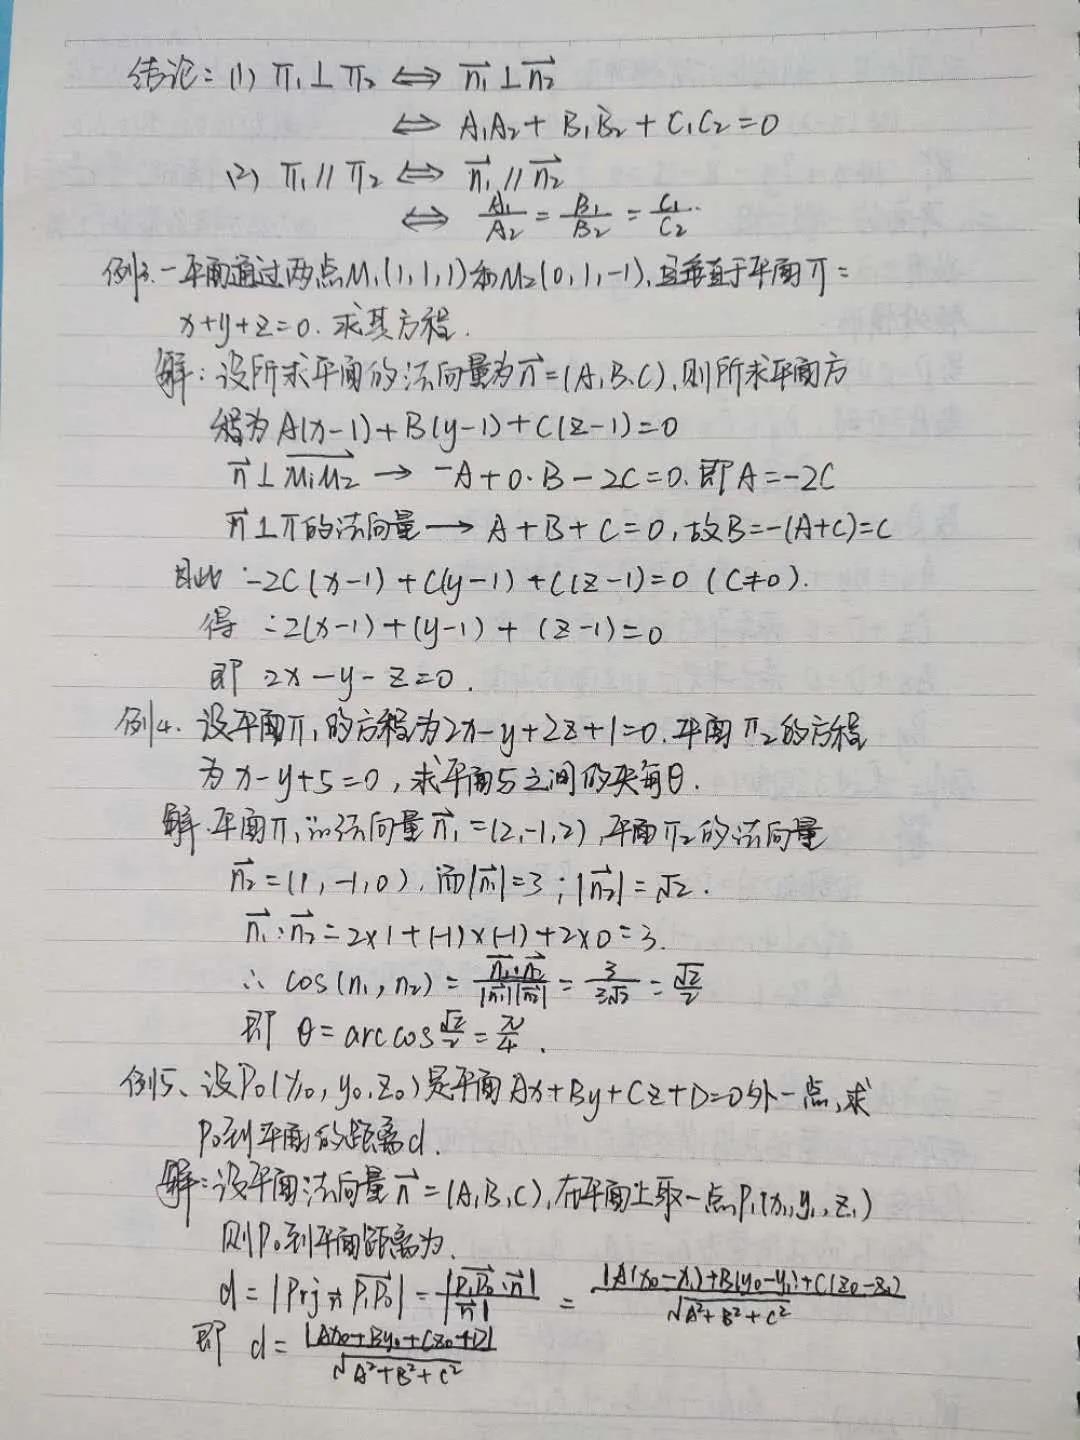 结论：(1) π₁⊥π₂ ⟺ n₁⊥n₂
⟺ A₁A₂ + B₁B₂ + C₁C₂ = 0
(2) π₁∥π₂ ⟺ n₁∥n₂
⟺ A₁/A₂ = B₁/B₂ = C₁/C₂.
例3.一平面通过两点M₁(1,1,1)和M₂(0,1,-1),且垂直于平面π：
x+y+z=0.求其方程.
解：设所求平面的法向量为n=(A,B,C),则所求平面方
程为A(x-1)+B(y-1)+C(z-1)=0
n⊥M₁M₂ → -A+0·B-2C=0.即A=-2C
n⊥π的法向量 → A+B+C=0,故B=-(A+C)=C
因此 -2C(x-1)+C(y-1)+C(z-1)=0 (C≠0).
得 -2(x-1)+(y-1)+(z-1)=0
即 2x-y-z=0.
例4.设平面π₁的方程为2x-y+2z+1=0.平面π₂的方程
为x-y+5=0,求平面与之间的夹角θ.
解.平面π₁的法向量n₁=(2,-1,2),平面π₂的法向量
n₂=(1,-1,0),而|n₁|=3;|n₂|=√2.
n₁·n₂=2×1+(-1)×(-1)+2×0=3.
∴ cos(n₁,n₂) = n₁·n₂/|n₁||n₂| = 3/3√2 = √2/2
即 θ=arccos√2/2=π/4.
例5、设P₀(x₀,y₀,z₀)是平面Ax+By+Cz+D=0外一点,求
P₀到平面的距离d.
解：设平面法向量n=(A,B,C),在平面上取一点P₁(x₁,y₁,z₁)
则P₀到平面距离为.
d=|Prj n P₁P₀|=|P₁P₀·n|/|n| = |A(x₀-x₁)+B(y₀-y₁)+C(z₀-z₁)|/√A²+B²+C²
即 d=|Ax₀+By₀+Cz₀+D|/√A²+B²+C²